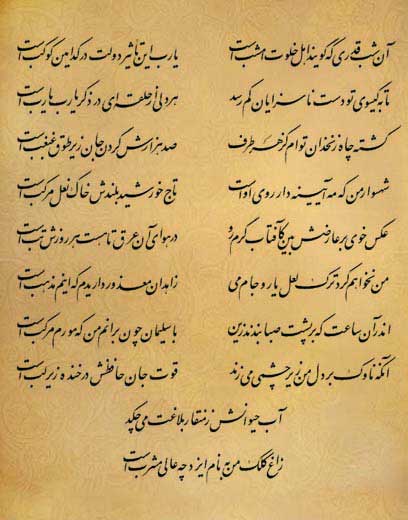 آن شب قدری که گویند اهل خلوت امشب است یارب این تأثیر دولت در کدامین کوکب است
تا به گیسوی تو دست ناسزایان کم رسد هر دلی از حلقه ای در ذکر یارب یارب است
کشته چاه زنخدان توام کز هر طرف صد هزارش گردن جان زیر طوق غبغب است
شهسوار من که مه آیینه دار روی او است تاج خورشید بلندش خاک نعل مرکب است
عکس خوی بر عارضش بین کآفتاب گرم رو در هوای آن عرق تا هست هر روزش تب است
من نخواهم کرد ترک لعل یار و جام می زاهدان معذور داریدم که اینم مذهب است
اندر آن ساعت که بر پشت صبا بندند زین با سلیمان چون برانم من که مورم مرکب است
آنکه ناوک بر دل من زیر چشمی می زند قوت جان حافظش در خنده زیر لب است
آب حیوانش ز منقار بلاغت می چکد
زاغ کلک من به نام ایزد چه عالی مشرب است